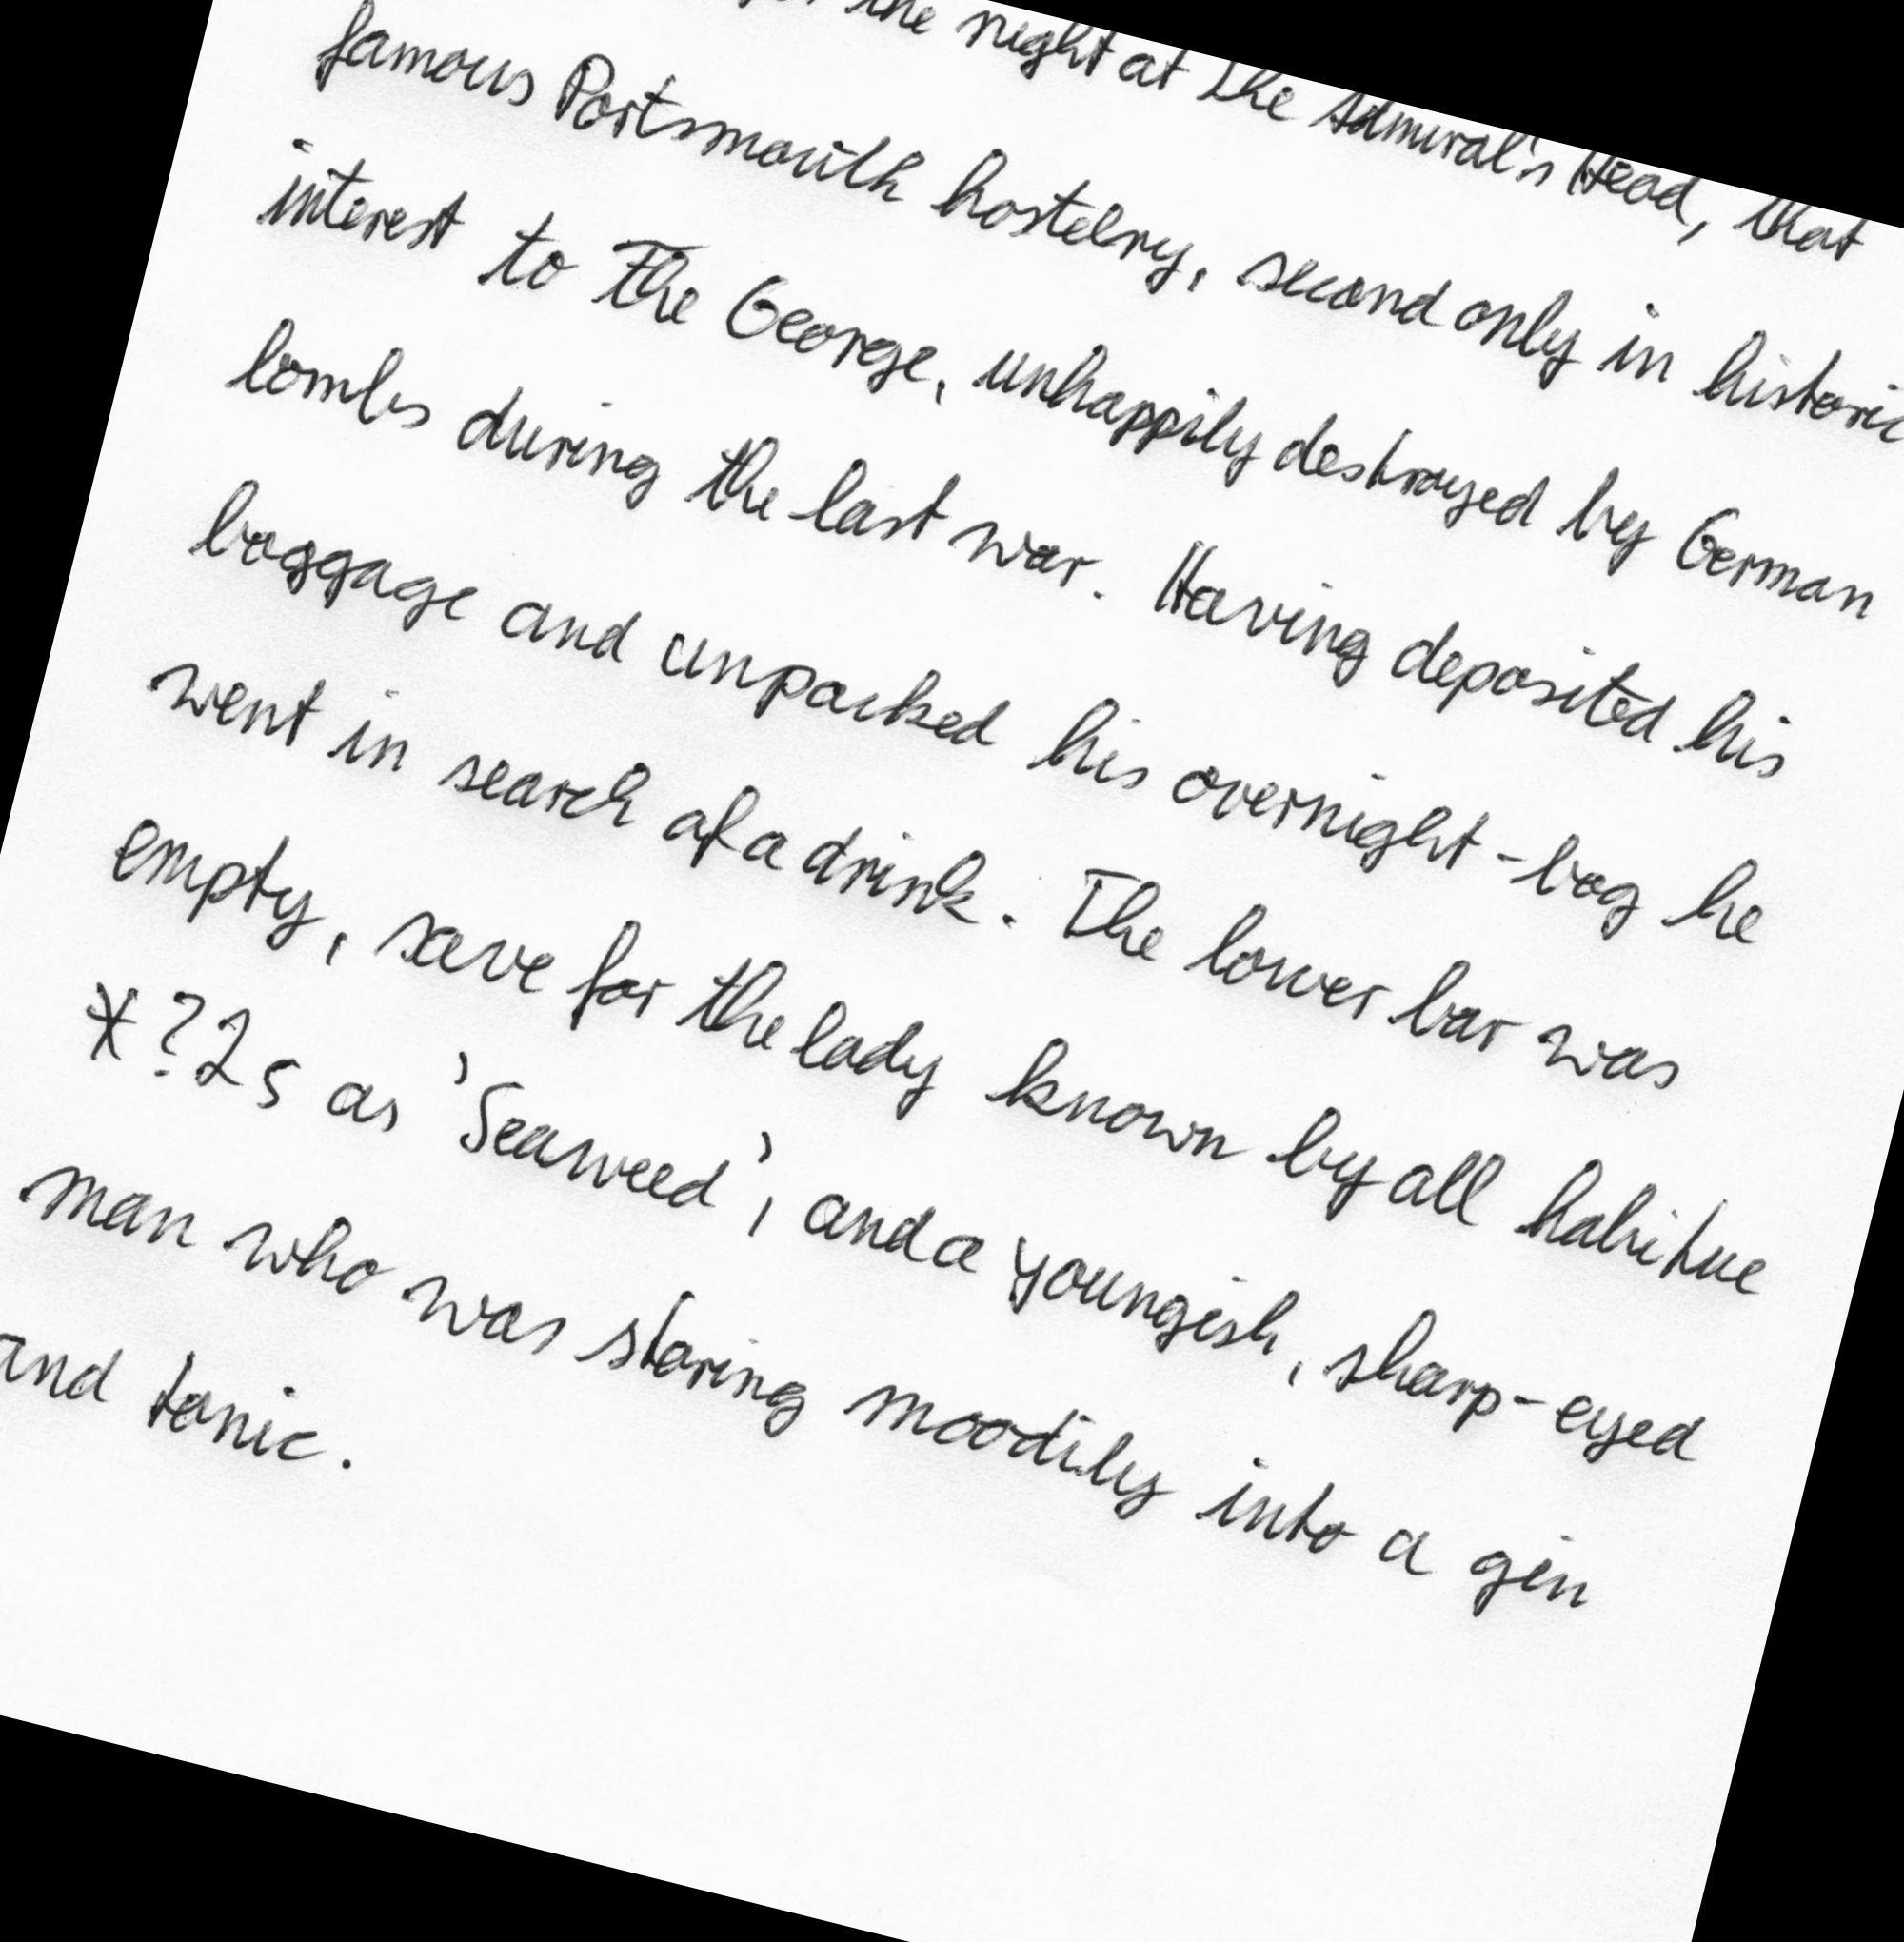 the night at The Admiral's Head, that
famous Portsmouth hostelry, second only in historic
interest to The George, unhappily destroyed by German
bombs during the last war. Having deposited his
baggage and unpacked his overnight-bag he
went in search of a drink. The lower bar was
empty, save for the lady known by all habitue
*?2s as 'Seaweed', and a youngish, sharp-eyed
man who was staring moodily into a gin
and tonic.